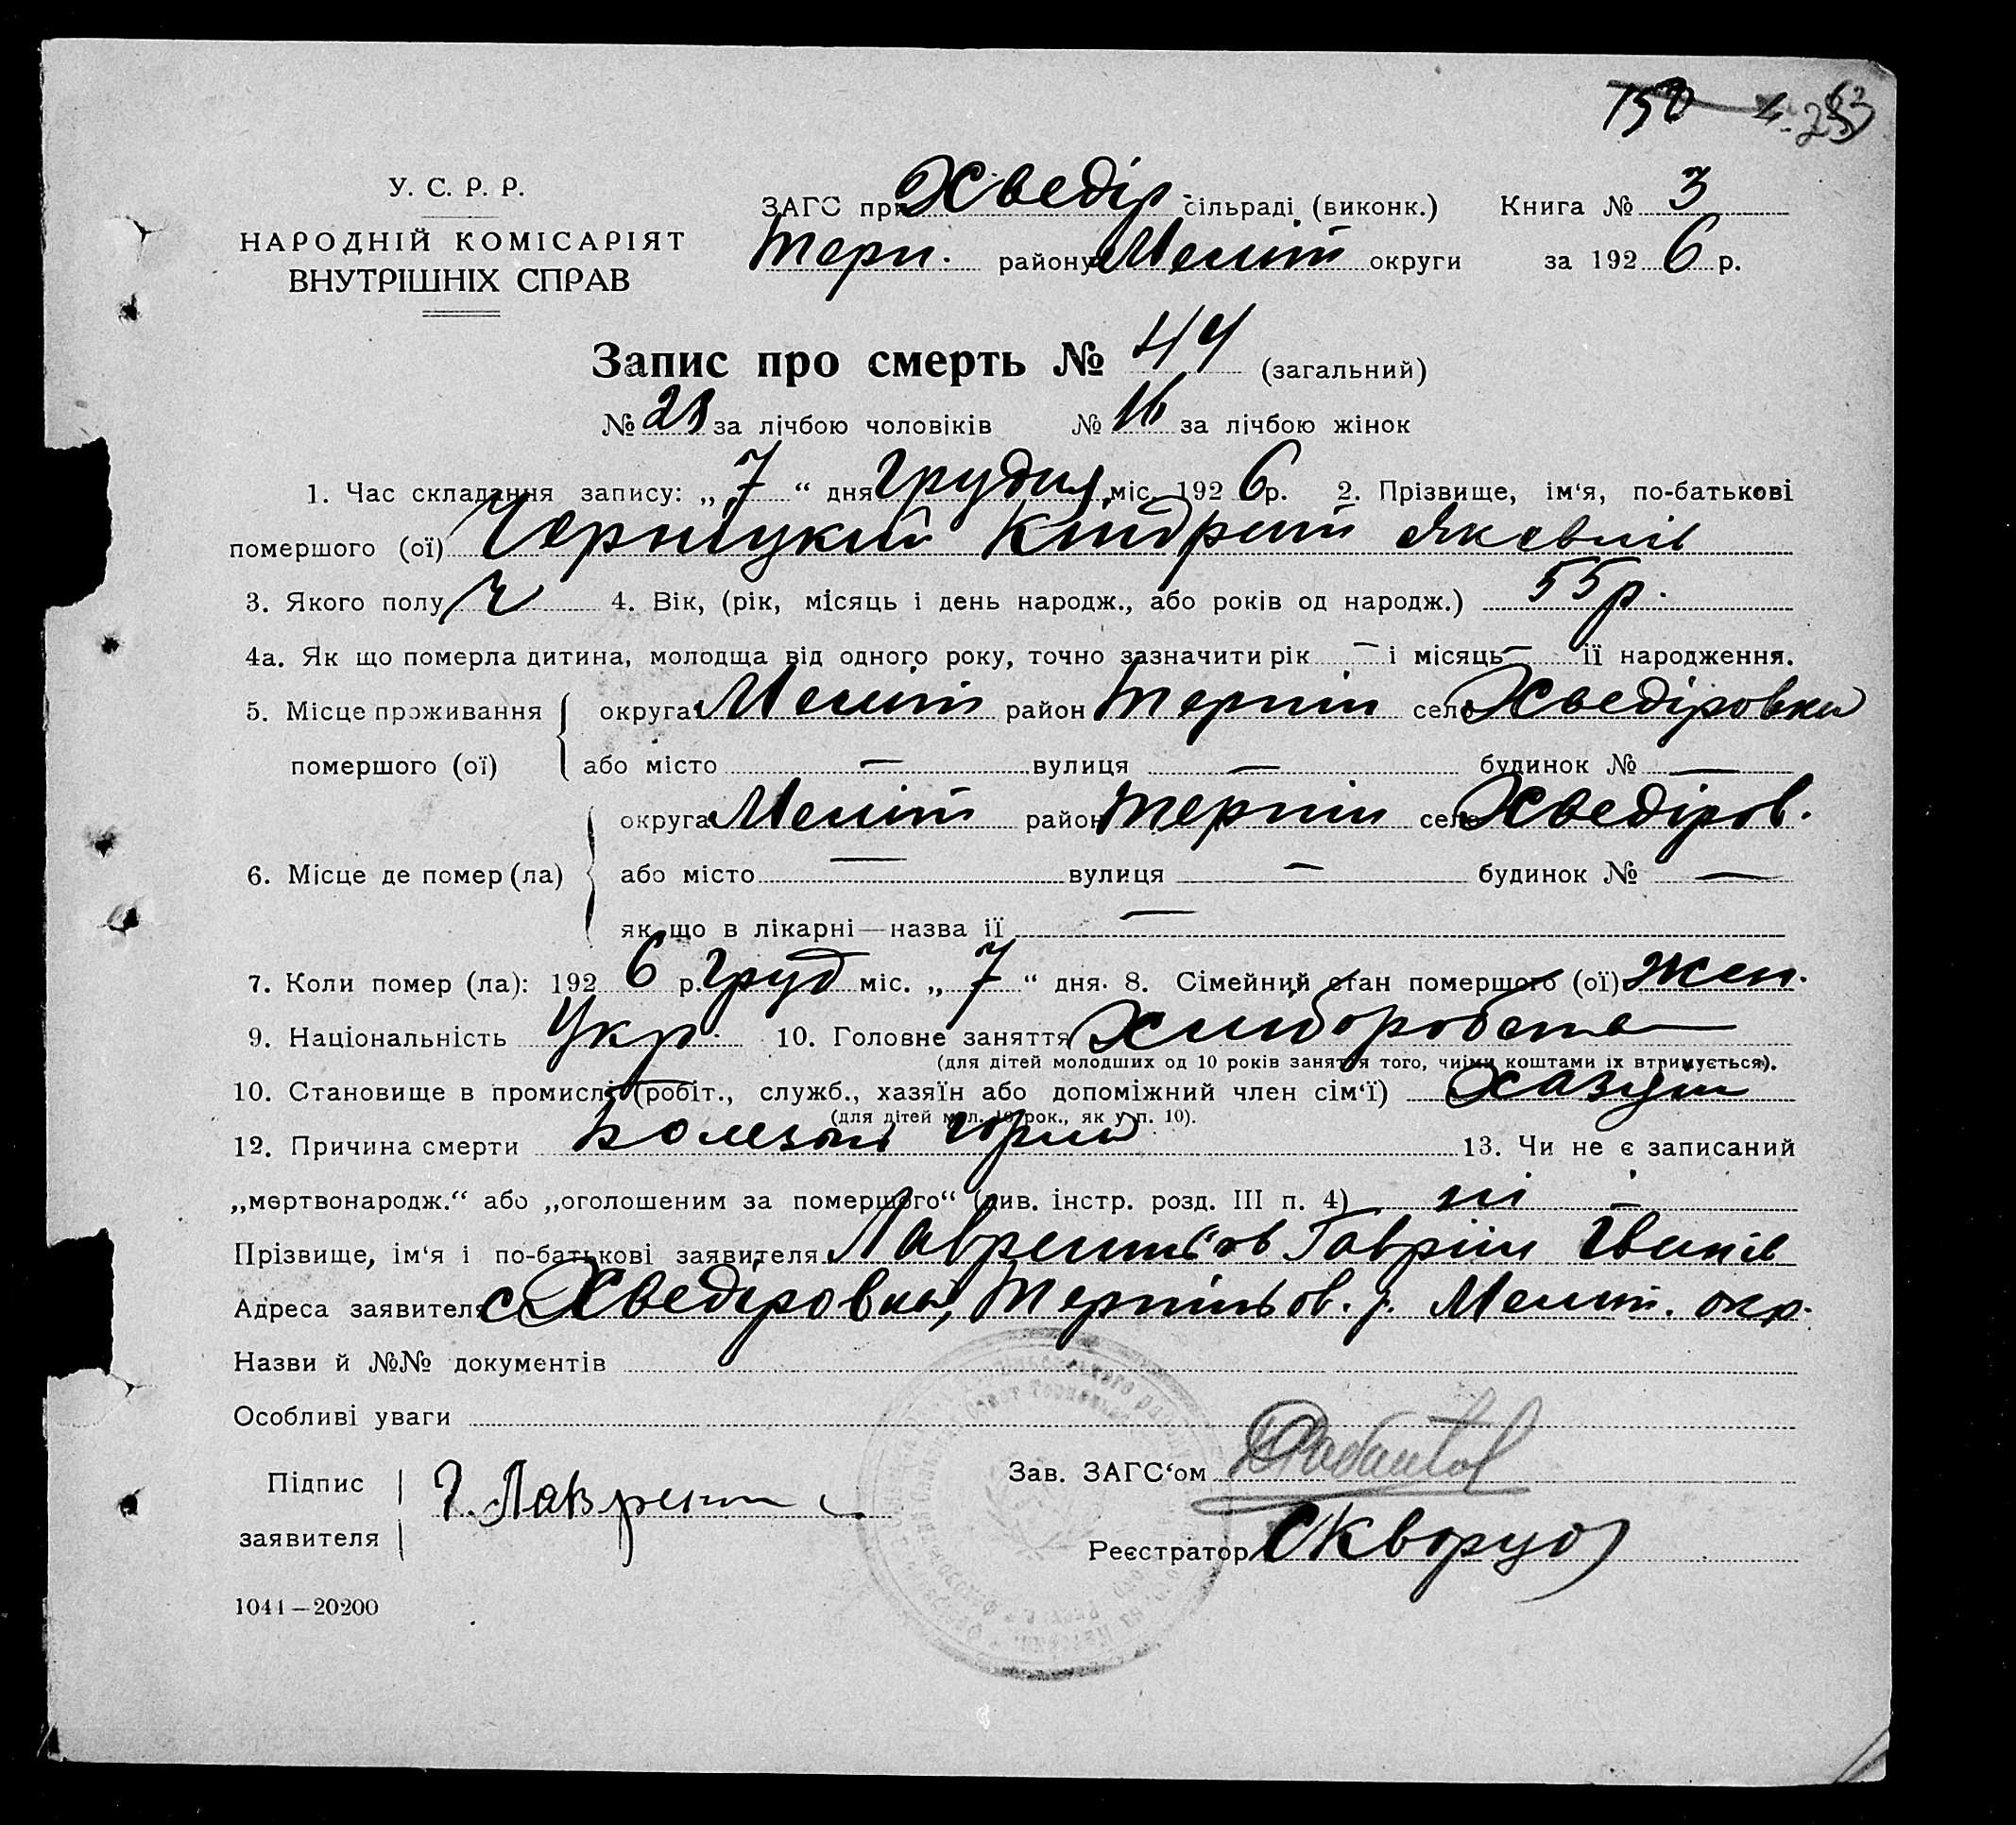 150 4. 253
У. С. Р. Р.
НАРОДНІЙ КОМІСАРІЯТ
ВНУТРІШНІХ СПРАВ
ЗАГС при Хведір сільраді (виконк.) Книга № 3
Терп. району Меліт округи за 1926 р.
Запис про смерть № 44 (загальний)
№ 28 за лічбою чоловіків № 16 за лічбою жінок
1. Час складання запису: „ 7 “ дня Грудня міс. 1926 р. 2. Прізвище, ім‘я, по-батькові
помершого (ої) Чорніцкий Кіндрат Яковлів
3. Якого полу ч 4. Вік, (рік, місяць і день народж., або років од народж.) 55 р.
4а. Як що померла дитина, молодща від одного року, точно зазначити рік — і місяць — її народження.
5. Місце проживання округа Меліт район Терпін село Хведіровка
помершого (ої) або місто — вулиця — будинок № —
округа Меліт район Терпін село Хведіров.
6. Місце де помер (ла) або місто — вулиця — будинок № —
як що в лікарні—назва її —
7. Коли помер (ла): 1926 р. Груд міс. „ 7 “ дня. 8. Сімейний стан помершого (ої) Жен.
9. Національність Укр. 10. Головне заняття Хліборобство
(для дітей молодших од 10 років заняття того, чиїми коштами їх втримується).
10. Становище в промислі (робіт., служб., хазяїн або допоміжний член сім‘ї) Хазяін
(для дітей мол. 10 рок., як у п. 10).
12. Причина смерти Болезнь горла 13. Чи не є записаний
„мертвонародж.“ або „оголошеним за помершого“ (див. інстр. розд. III п. 4) ні —
Прізвище, ім‘я і по-батькові заявителя Лаврентьєв Гавріїл Іванів
Адреса заявителя с. Хведіровка, Терпіньов. р. Меліт. окр.
Назви й №№ документів
Особливі уваги
Підпис
заявителя Г. Лаврент
Зав. ЗАГС‘ом
Реєстратор Скворцов
1041—20200